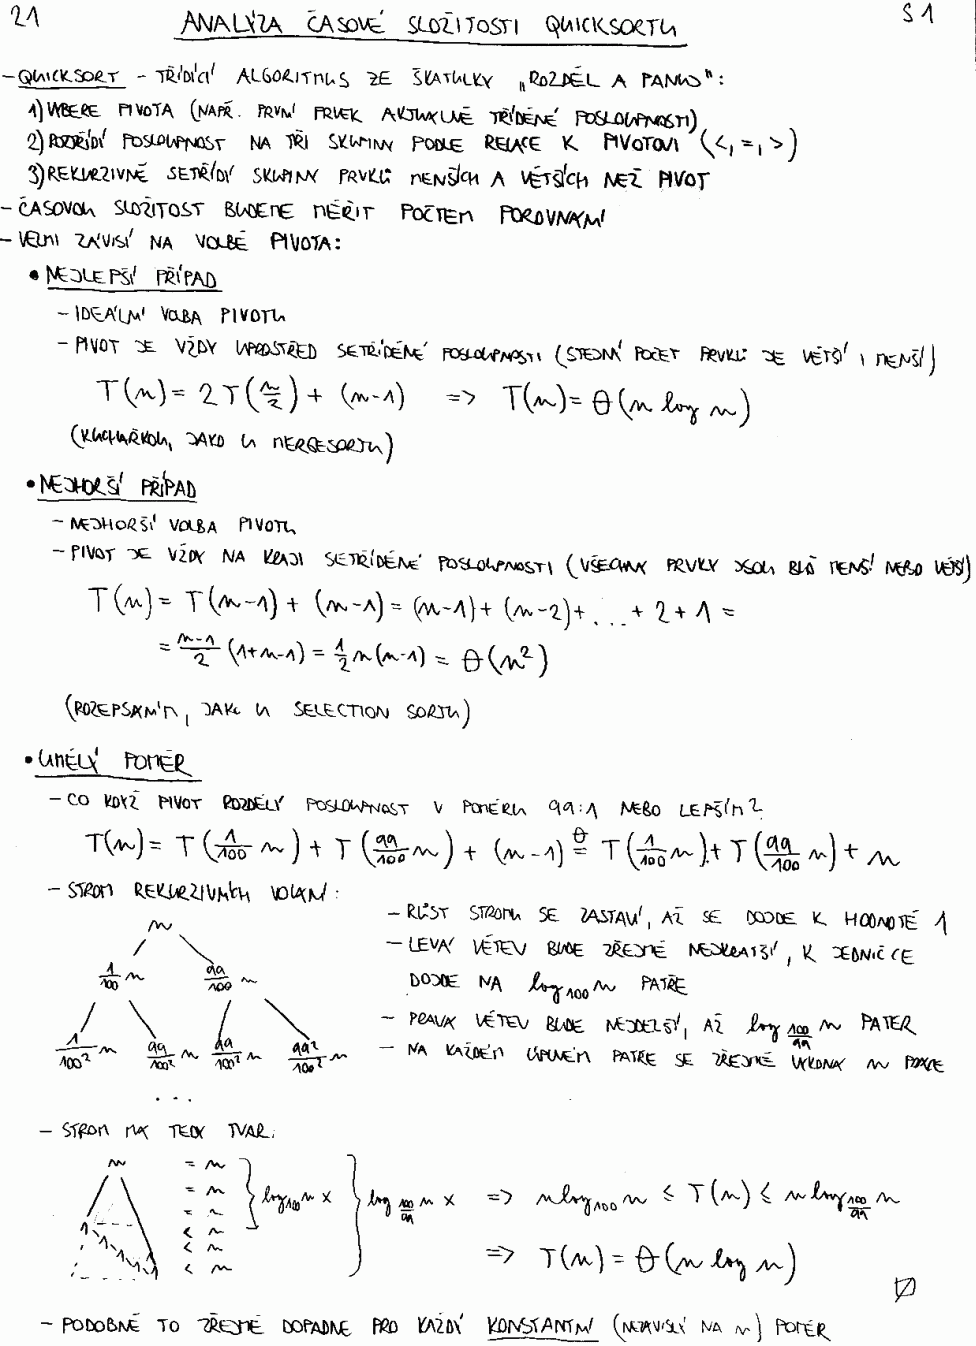 21
S1
ANALÝZA ČASOVÉ SLOŽITOSTI QUICKSORTU
- QUICKSORT - TŘÍDÍCÍ ALGORITMUS ZE ŠKATULKY „ROZDĚL A PANUJ":
1) VYBERE PIVOTA (NAPŘ. PRVNÍ PRVEK AKTUÁLNĚ TŘÍDĚNÉ POSLOUPNOSTI)
2) ROZTŘÍDÍ POSLOUPNOST NA TŘI SKUPINY PODLE RELACE K PIVOTOVI (<, =, >)
3) REKURZIVNĚ SETŘÍDÍ SKUPINY PRVKŮ MENŠÍCH A VĚTŠÍCH NEŽ PIVOT
- ČASOVOU SLOŽITOST BUDEME MĚŘIT POČTEM POROVNÁNÍ
- VELMI ZÁVISÍ NA VOLBĚ PIVOTA:
• NEJLEPŠÍ PŘÍPAD
- IDEÁLNÍ VOLBA PIVOTU
- PIVOT JE VŽDY UPROSTŘED SETŘÍDĚNÉ POSLOUPNOSTI (STEJNÝ POČET PRVKŮ JE VĚTŠÍ I MENŠÍ)
T(n) = 2T(n/2) + (n-1) => T(n) = Θ(n log n)
(KUCHAŘKOU, JAKO U MERGESORTU)
• NEJHORŠÍ PŘÍPAD
- NEJHORŠÍ VOLBA PIVOTU
- PIVOT JE VŽDY NA KRAJI SETŘÍDĚNÉ POSLOUPNOSTI (VŠECHNY PRVKY JSOU BUĎ MENŠÍ NEBO VĚTŠÍ)
T(n) = T(n-1) + (n-1) = (n-1) + (n-2) + ... + 2 + 1 =
= n-1/2 (1+n-1) = 1/2 n(n-1) = Θ(n²)
(ROZEPSÁNÍM, JAKO U SELECTION SORTU)
• UMĚLÝ POMĚR
- CO KDYŽ PIVOT ROZDĚLÝ POSLOUPNOST V POMĚRU 99:1 NEBO LEPŠÍM?
T(n) = T(1/100 n) + T(99/100 n) + (n-1) Θ= T(1/100 n) + T(99/100 n) + n
- STROM REKURZIVNÍCH VOLÁNÍ:
n
1/100 n 99/100 n
1/100² n 99/100² n 99/100² n 99²/100² n
...
- RŮST STROMU SE ZASTAVÍ, AŽ SE DOJDE K HODNOTĚ 1
- LEVÁ VĚTEV BUDE ZŘEJMĚ NEJKRATŠÍ, K JEDNIČCE
DOJDE NA log₁₀₀ n PATŘE
- PRAVÁ VĚTEV BUDE NEJDELŠÍ, AŽ log 100/99 n PATER
- NA KAŽDÉM ÚPLNÉM PATŘE SE ZŘEJMĚ VYKONÁ n PRÁCE
- STROM MÁ TEDY TVAR:
n = n
= n
= n
< n
< n
< n
1 1 1 1 1
log₁₀₀ n ×
log 100/99 n ×
=> n log₁₀₀ n ≤ T(n) ≤ n log 100/99 n
=> T(n) = Θ(n log n)
- PODOBNĚ TO ZŘEJMĚ DOPADNE PRO KAŽDÝ KONSTANTNÍ (NEZÁVISLÝ NA n) POMĚR